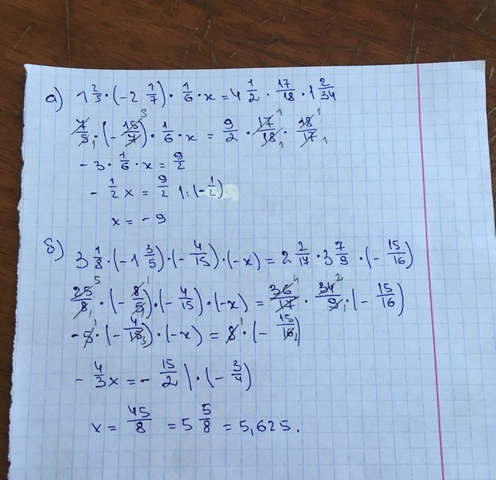 а) 1 2/3 · (-2 1/7) · 1/6 · x = 4 1/2 · 17/18 · 1 2/34
7/5 · (- 15/7) · 1/6 · x = 9/2 · 17/18 · 18/17
- 3 · 1/6 · x = 9/2
- 1/2 x = 9/2 | : (- 1/2)
x = - 9
б) 3 1/8 · (-1 3/5) · (- 4/15) · (-x) = 2 2/17 · 3 7/9 · (- 15/16)
25/8 · (- 8/5) · (- 4/15) · (-x) = 36/17 · 34/9 · (- 15/16)
- 5 · (- 4/15) · (-x) = 8 · (- 15/16)
- 4/3 x = - 15/2 | · (- 3/4)
x = 45/8 = 5 5/8 = 5,625.